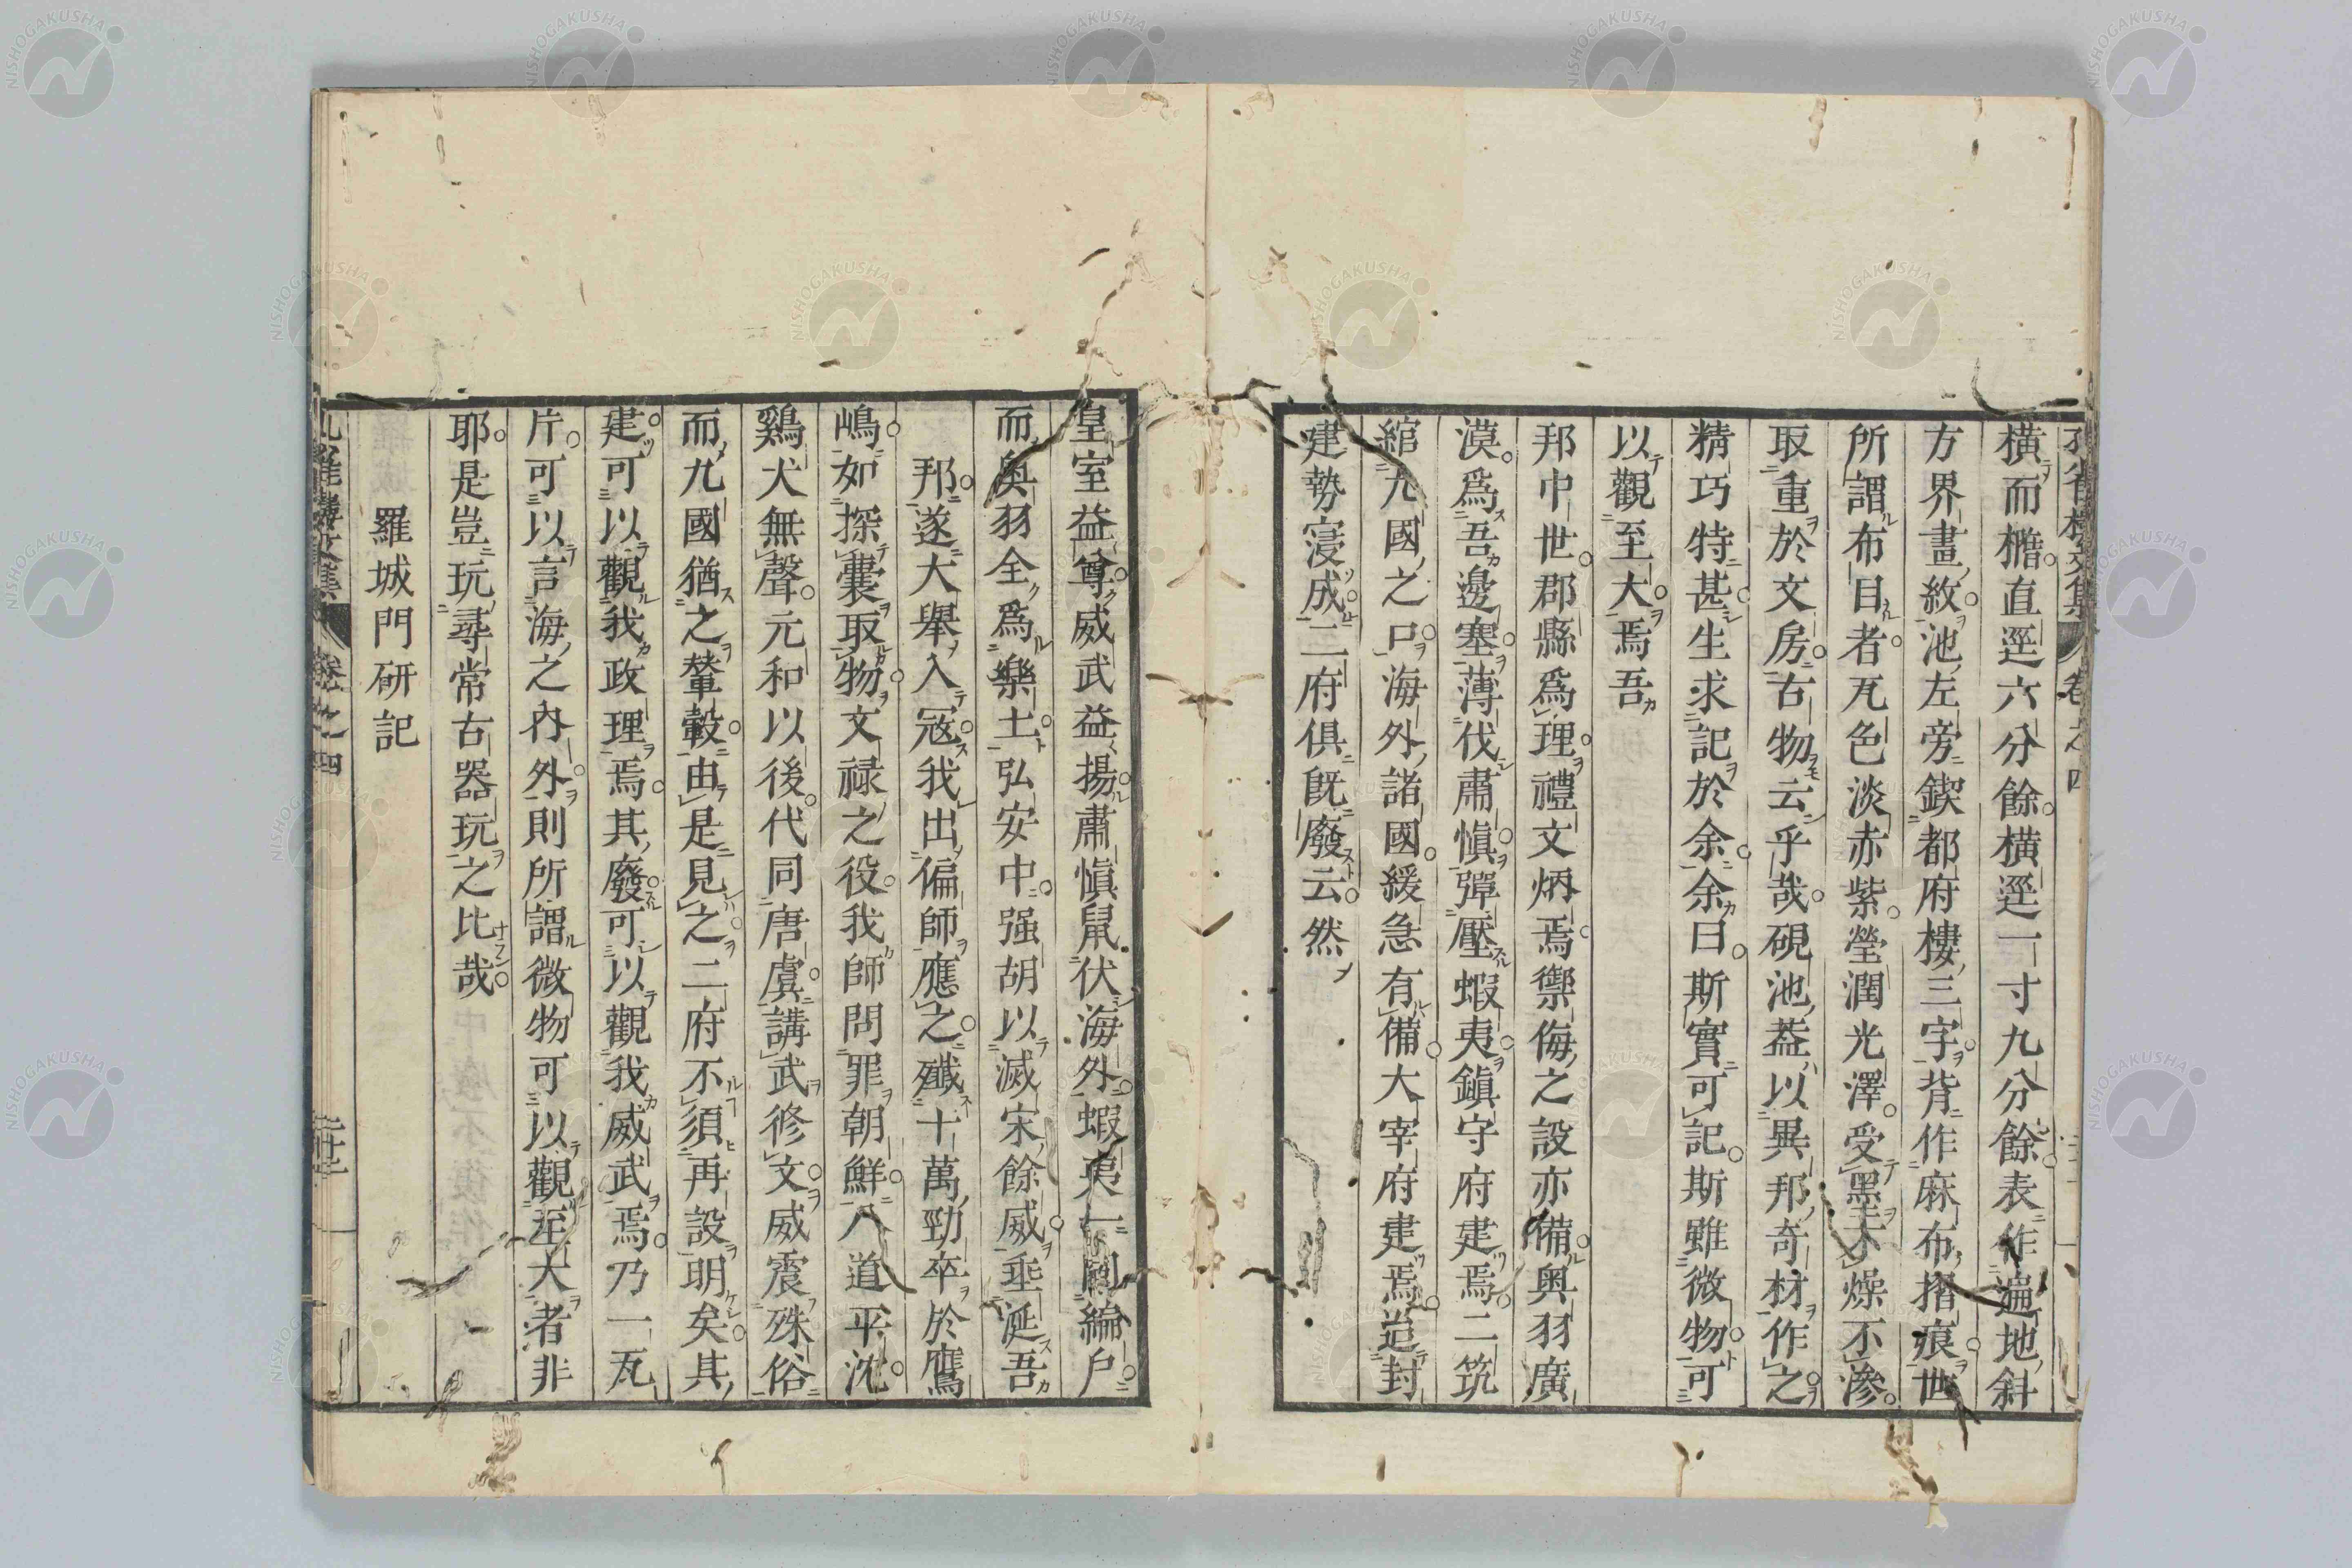 橫而楕直逕六分餘橫逕一寸九分餘表作遍地斜
方界畫紋池左旁鍥都府樓三字背作麻布摺痕世
所謂布目者瓦色淡赤紫瑩潤光澤受墨不燥不滲
取重於文房古物云乎哉硯池葢以異邦奇材作之
精巧特甚生求記於余余曰斯實可記斯雖微物可
以觀至大焉吾
邦中世郡縣爲理禮文炳焉禦侮之設亦備奧羽廣
漠爲吾邊塞薄伐肅愼彈壓蝦夷鎭守府建焉二筑
綰九國之口海外諸國緩急有備大宰府建焉迨封
建勢寖成二府俱旣廢云然
皇室益尊威武益揚肅愼鼠伏海外蝦夷一編戶
而奧羽全爲樂土弘安中强胡以滅宋餘威垂涎吾
邦遂大舉入寇我出偏師應之殲十萬勁卒於鷹
嶋如探囊取物文禄之役我師問罪朝鮮八道平沈
鷄犬無聲元和以後代同唐虞講武修文威震殊俗
而九國猶之輦轂由是見之二府不須再設明矣其
建可以觀我政理焉其廢可以觀我威武焉乃一瓦
片可以言海之內外則所謂微物可以觀至大者非
耶是豈玩尋常古器玩之比哉
羅城門硏記
卷之四